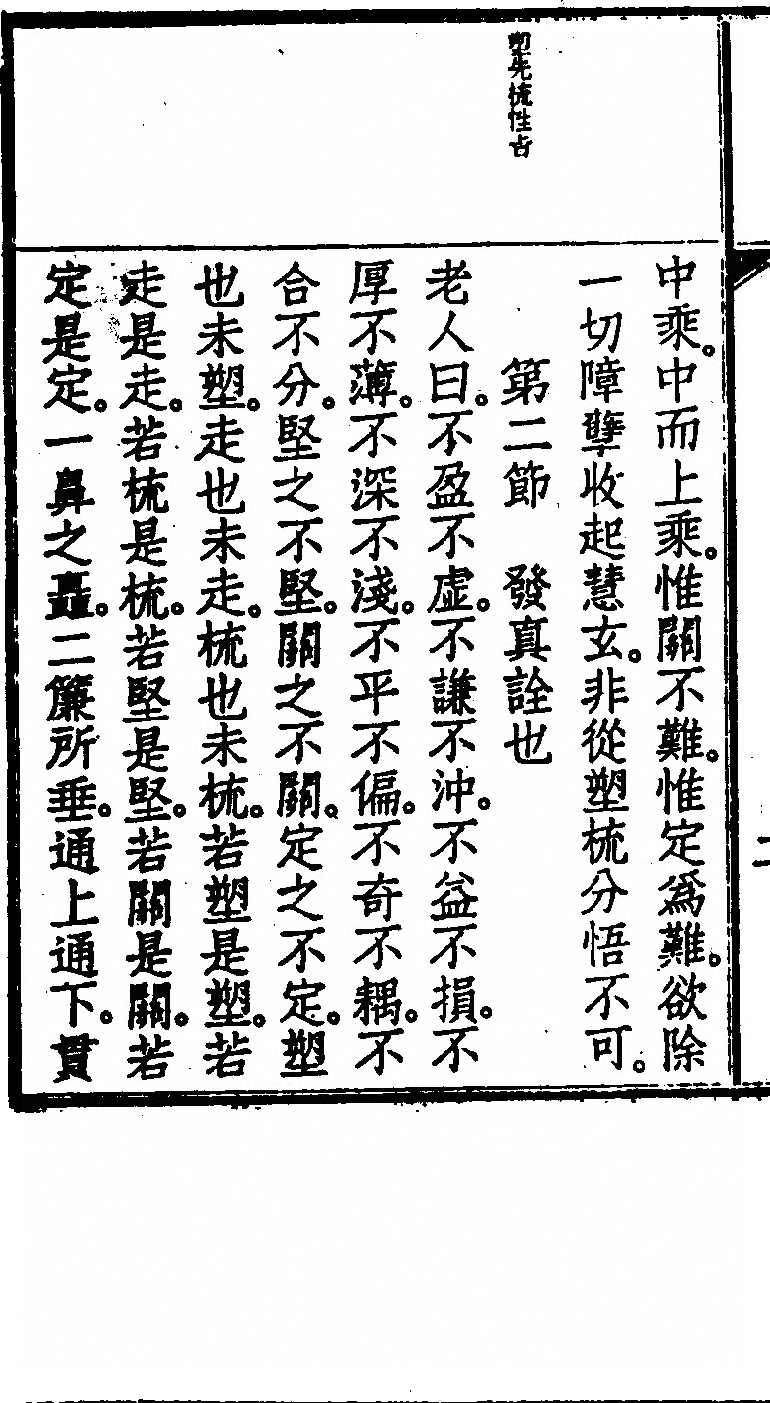 塑先梳性占
中乘。中而上乘。惟關不難。惟定爲難。欲除
一切障孽收起慧玄。非從塑梳分悟不可。
第二節　發真詮也
老人曰。不盈不虛。不謙不沖。不益不損。不
厚不薄。不深不淺。不平不偏。不奇不耦。不
合不分。堅之不堅。關之不關。定之不定。塑
也未塑。走也未走。梳也未梳。若塑是塑。若
走是走。若梳是梳。若堅是堅。若關是關。若
定是定。一鼻之矗。二簾所垂。通上通下。貫